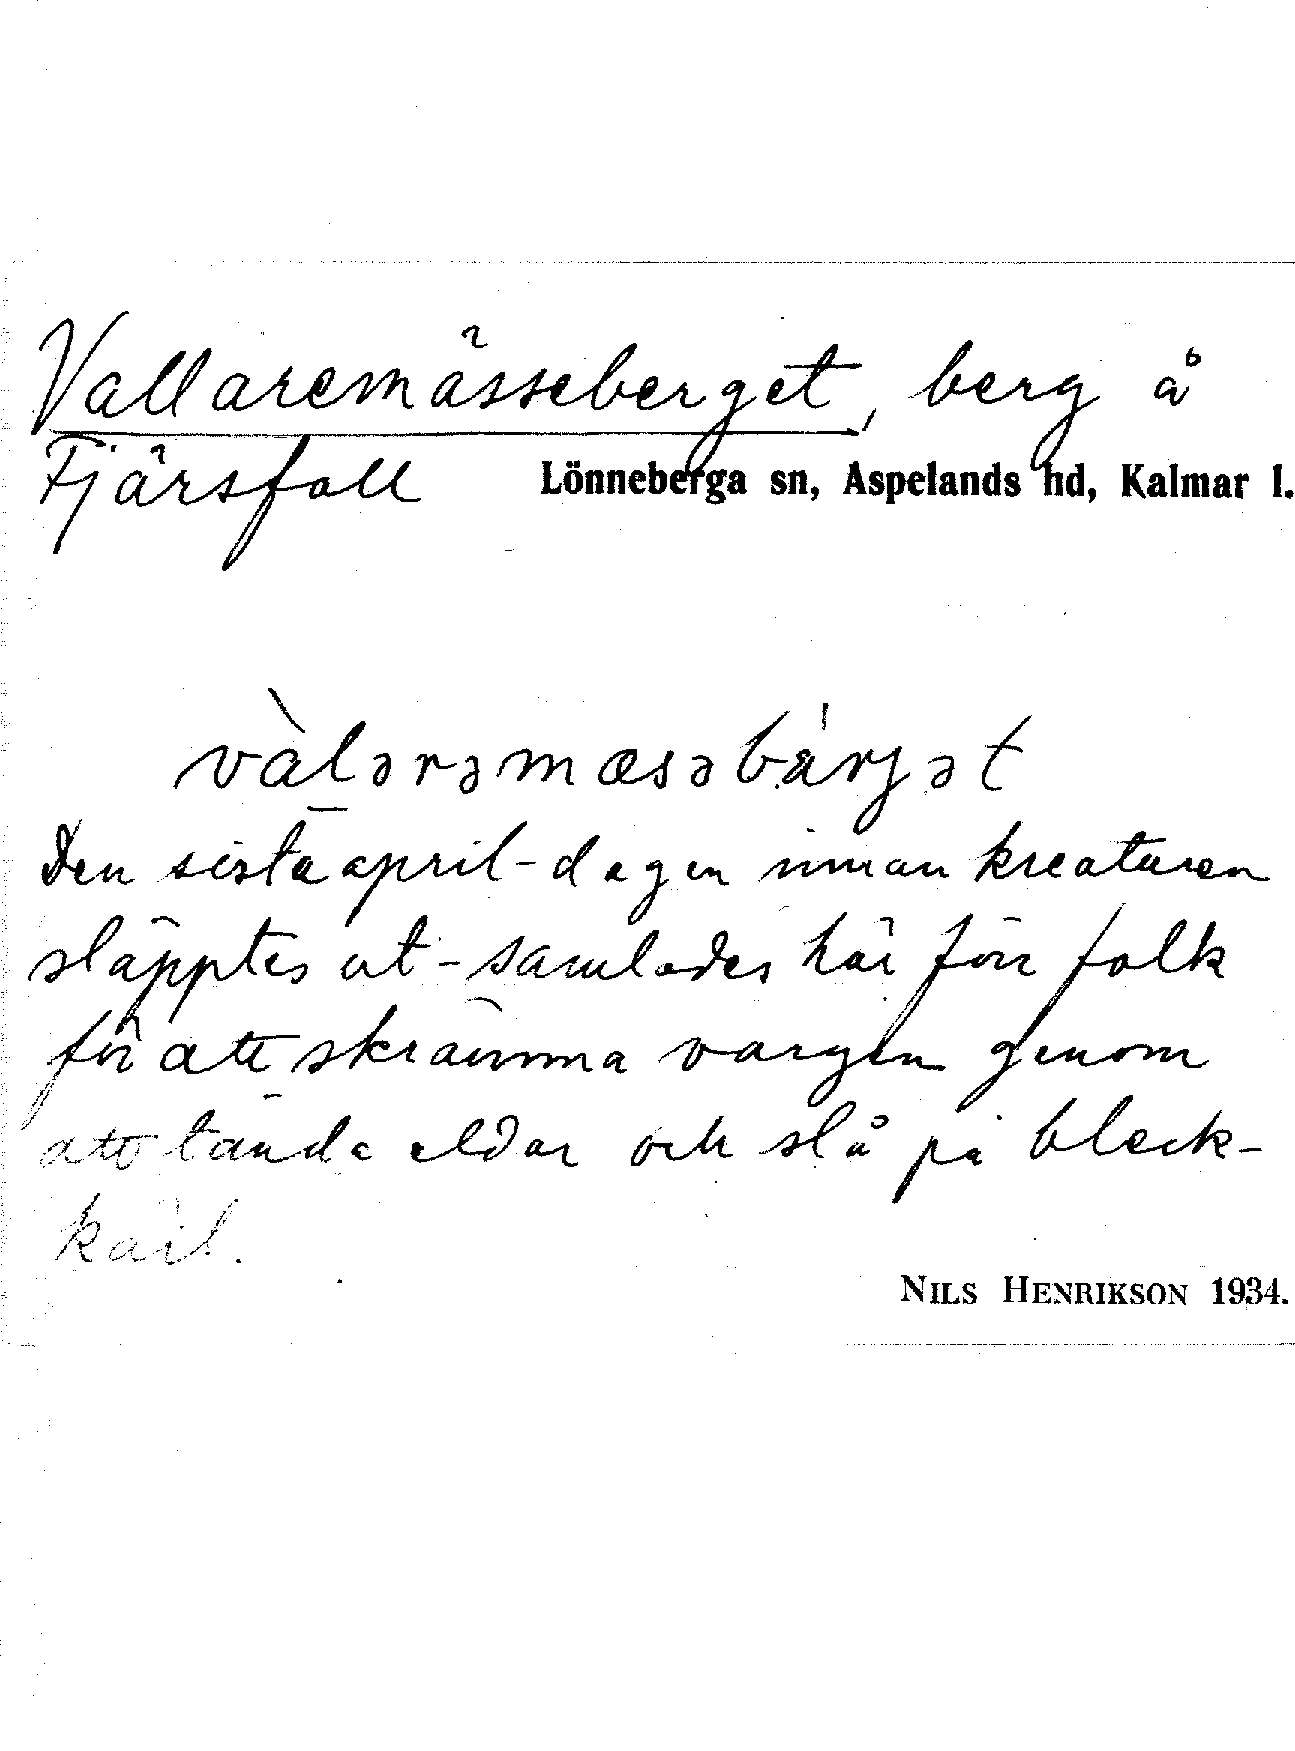 Vallaremässeberget, berg å
Fjärsfall Lönneberga sn, Aspelands hd, Kalmar l.
vàlərəmæsəbárjət
Den sista april - dagen innan kreaturen
släpptes ut - samlades här förr folk
för att skrämma vargen genom
att tända eldar och slå på bleck-
kärl.
NILS HENRIKSON 1934.